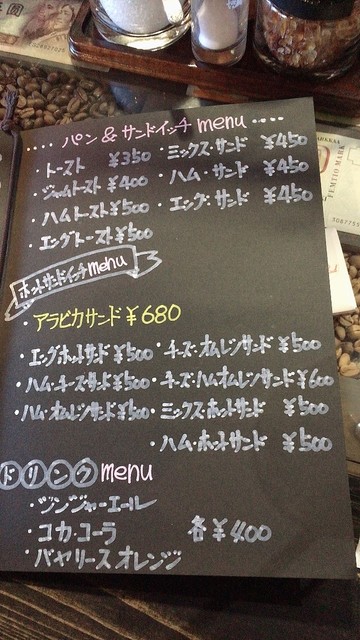 パン & サンドイッチ menu
・トースト ¥350
・ジャムトースト ¥400
・ハムトースト ¥500
・エッグトースト ¥500
・ミックス・サンド ¥450
・ハム・サンド ¥450
・エッグ・サンド ¥450
ホットサンドイッチ menu
・アラビカサンド ¥680
・エッグホットサンド ¥500
・ハム・チーズサンド ¥500
・ハム・オムレツサンド ¥500
・チーズ・オムレツサンド ¥500
・チーズ・ハムオムレツサンド ¥600
・ミックス・ホットサンド ¥500
・ハム・ホットサンド ¥500
ドリンク menu
・ジンジャーエール
・コカ・コーラ 各¥400
・バヤリースオレンジ